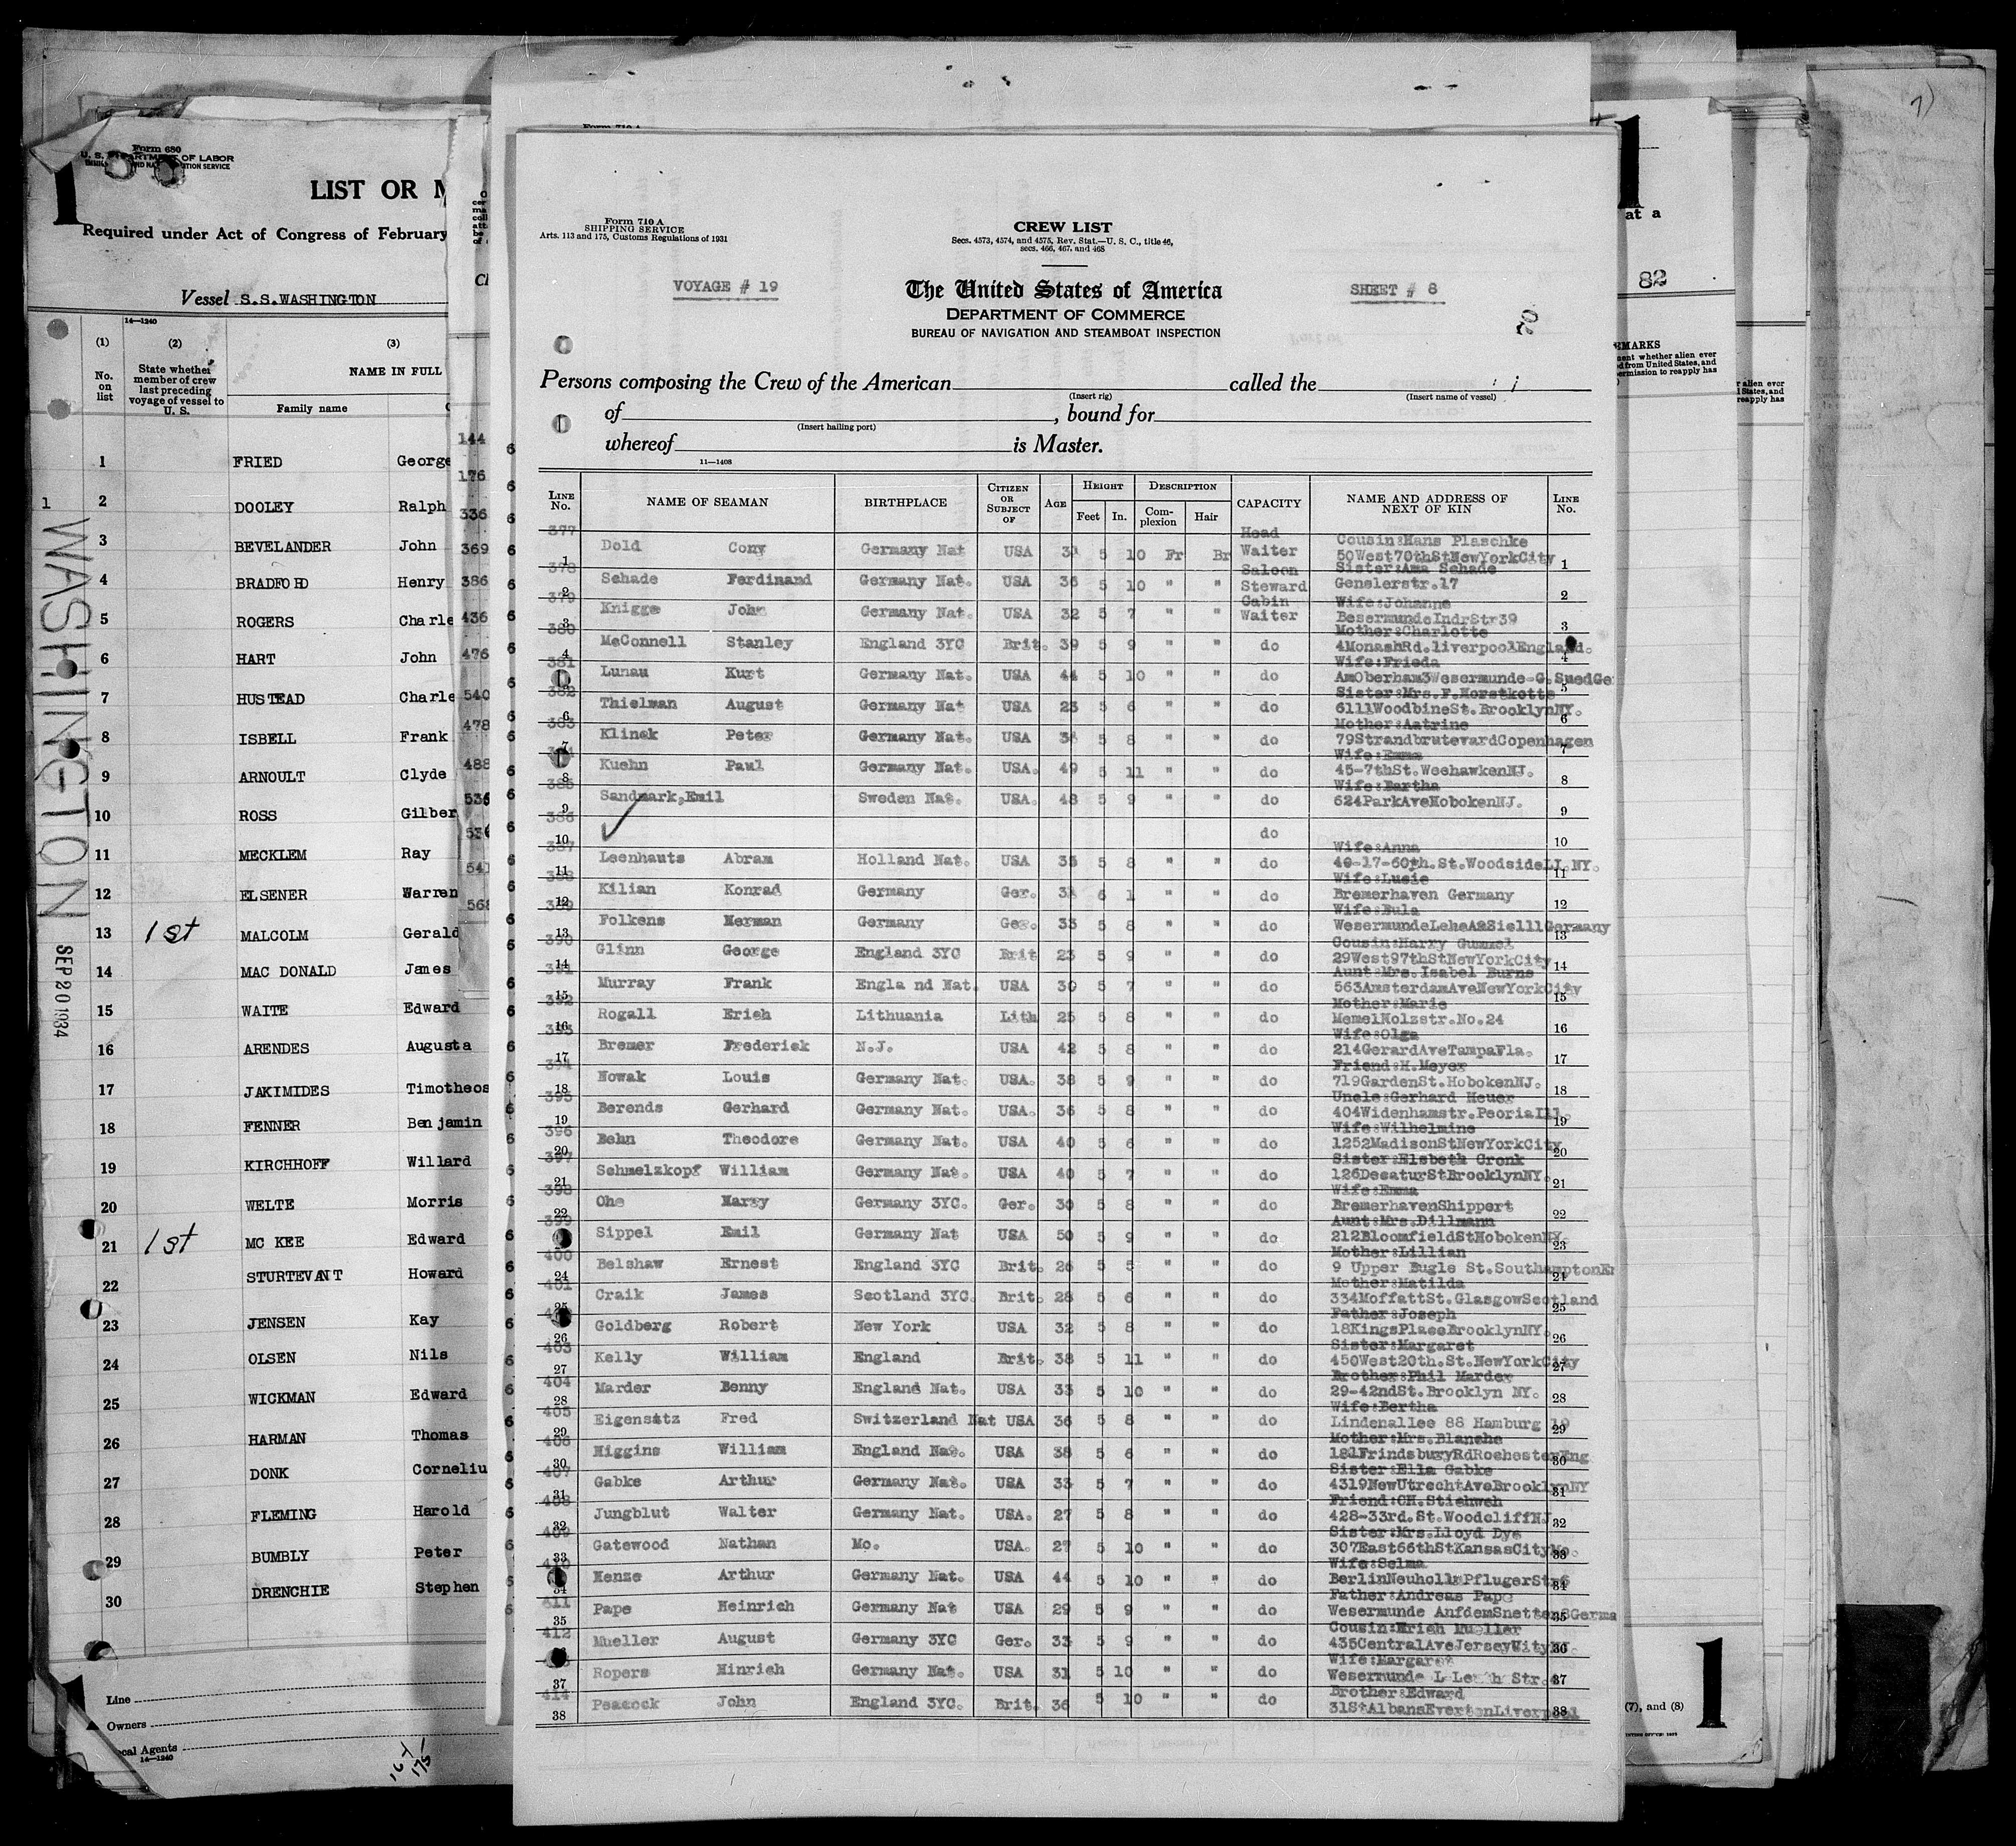 Form 680
U. S. DEPARTMENT OF LABOR
LIST OR M
Required under Act of Congress of February
Vessel S.S.WASHINGTON
14—1240
(1) (2) (3)
No. on list
State whether member of crew last preceding voyage of vessel to U. S.
NAME IN FULL
Family name
1 FRIED George
2 DOOLEY Ralph
3 BEVELANDER John
4 BRADFORD Henry
5 ROGERS Charle
6 HART John
7 HUSTEAD Charle
8 ISBELL Frank
9 ARNOULT Clyde
10 ROSS Gilber
11 MECKLEM Ray
12 ELSENER Warren
13 1st MALCOLM Gerald
14 MAC DONALD James
15 WAITE Edward
16 ARENDES Augusta
17 JAKIMIDES Timotheos
18 FENNER Benjamin
19 KIRCHHOFF Willard
20 WELTE Morris
21 1st MC KEE Edward
22 STURTEVANT Howard
23 JENSEN Kay
24 OLSEN Nils
25 WICKMAN Edward
26 HARMAN Thomas
27 DONK Corneliu
28 FLEMING Harold
29 BUMBLY Peter
30 DRENCHIE Stephen
Line
Owners
cal Agents
14—1240
WASHINGTON
SEP 20 1934
144
176
336
369
386
436
476
540
478
488
Form 710 A
SHIPPING SERVICE
Arts. 113 and 175, Customs Regulations of 1931
CREW LIST
Secs. 4573, 4574, and 4575, Rev. Stat.—U. S. C., title 46, secs. 466, 467, and 468
VOYAGE # 19
The United States of America
SHEET # 8
DEPARTMENT OF COMMERCE
BUREAU OF NAVIGATION AND STEAMBOAT INSPECTION
Persons composing the Crew of the American called the
(Insert rig) (Insert name of vessel)
of , bound for
(Insert hailing port)
whereof is Master.
11—1408
LINE No. NAME OF SEAMAN BIRTHPLACE CITIZEN OR SUBJECT OF AGE HEIGHT Feet In. DESCRIPTION Complexion Hair CAPACITY NAME AND ADDRESS OF NEXT OF KIN LINE No.
377 Head Cousin:Hans Plaschke
1 Dold Cony Germany Nat USA 5 10 Fr Br Waiter 50West70thStNewYorkCity 1
378 Saloon Sister:Ama Schade
2 Schade Ferdinand Germany Nat. USA 36 5 10 " " Steward Genslerstr.17 2
379 Cabin Wife:Johanne
3 Knigge John Germany Nat. USA 32 5 7 " " Waiter BesermundeIndrStr39 3
380 Mother:Charlotte
4 McConnell Stanley England 3YC Brit. 39 5 9 " " do 4MonashRd.liverpoolEngland. 4
381 Wife:Frieda
Lunau Kurt Germany Nat. USA 44 5 10 " " do AmOberham3Wesermunde-G.SuedGe 5
382 Sister:Mrs.F.Horstkotte
6 Thielman August Germany Nat USA 23 5 6 " " do 6111WoodbineSt.BrooklynNY. 6
383 Mother:Aatrine
7 Klinek Peter Germany Nat. USA 5 8 " " do 79StrandbrutevardCopenhagen 7
Wife:Emma
8 Kuehn Paul Germany Nat. USA. 49 5 11 " " do 45-7thSt.WeehawkenNJ. 8
385 Wife:Bertha
9 Sandmark,Emil Sweden Nat. USA. 48 5 9 " " do 624ParkAveHobokenNJ. 9
386
10 do 10
387 Wife:Anna
11 Leenhauts Abram Holland Nat. USA 35 5 8 " " do 40-17-60th.St.WoodsideLI.NY. 11
388 Wife:Lucie
12 Kilian Konrad Germany Ger. 6 1 " " do Bremerhaven Germany 12
389 Wife:Eula
13 Folkens Herman Germany Ger. 33 5 8 " " do WesermundeLeheA2Sielll Germany 13
390 Cousin:Harry Gummel
14 Glinn George England 3YC Brit 23 5 9 " " do 29West97thStNewYorkCity 14
391 Aunt:Mrs.Isabel Burns
15 Murray Frank Engla nd Nat. USA 30 5 7 " " do 563AmsterdamAveNewYorkCity 15
392 Mother:Marie
16 Rogall Erich Lithuania Lith 25 5 8 " " do MemelHolzstr.No.24 16
393 Wife:Olga
17 Bremer Frederick N.J. USA 42 5 8 " " do 214GerardAveTampaFla. 17
394 Friend:H.Meyer
18 Nowak Louis Germany Nat. USA. 38 5 9 " " do 719GardenSt.HobokenNJ. 18
395 Uncle:Gerhard Heuer
19 Berends Gerhard Germany Nat. USA. 36 5 8 " " do 404Widenhamstr.PeoriaIll. 19
396 Wife:Wilhelmine
20 Behn Theodore Germany Nat. USA 40 5 6 " " do 1252MadisonStNewYorkCity 20
397 Sister:Elsbeth Cronk
21 Schmelzkopf William Germany Nat. USA 40 5 7 " " do 126DecaturStBrooklynNY. 21
398 Wife:Emma
22 Ohe Harry Germany 3YC. Ger. 30 5 8 " " do BremerhavenShippert 22
399 Aunt:Mrs.Dillmann
Sippel Emil Germany Nat USA 50 5 9 " " do 212BloomfieldStHobokenNY. 23
400 Mother:Lillian
24 Belshaw Ernest England 3YC Brit. 26 5 5 " " do 9 Upper Bugle St.SouthamptonEn 24
401 Mother:Matilda
25 Craik James Scotland 3YC. Brit. 28 5 6 " " do 334MoffattSt.GlasgowScotland 25
Father:Joseph
26 Goldberg Robert New York USA 32 5 8 " " do 18KingsPlaceBrooklynNY. 26
403 Sister:Margaret
27 Kelly William England Brit. 38 5 11 " " do 450West20th.St.NewYorkCity 27
404 Brother:Phil Marder
28 Marder Benny England Nat. USA 33 5 10 " " do 29-42ndSt.Brooklyn NY. 28
405 Wife:Bertha
29 Eigensatz Fred Switzerland Nat USA 36 5 8 " " do Lindenallee 88 Hamburg 19 29
406 Mother:Mrs.Blanche
30 Higgins William England Nat. USA 38 5 6 " " do 181FrindsburyRdRochesterEng 30
407 Sister:Ella Gabke
31 Gabke Arthur Germany Nat. USA 33 5 7 " " do 4319NewUtrechtAveBrooklynNY 31
408 Friend:CH.Stichweh
32 Jungblut Walter Germany Nat. USA. 27 5 8 " " do 428-33rd.St.WoodcliffNJ 32
409 Sister:Mrs.Lloyd Dye
33 Gatewood Nathan Mo. USA. 27 5 10 " " do 307East66thStKansasCityMo. 33
410 Wife:Selma
34 Henze Arthur Germany Nat. USA 44 5 10 " " do 34
411 Father:Andreas Pape
35 Pape Heinrich Germany Nat USA 29 5 9 " " do Wesermunde AnfdemSnetten8Germa 35
412 Cousin:Erich Mueller
Mueller August Germany 3YC Ger. 33 5 9 " " do 435CentralAveJerseyCity 36
Wife:Margaret
37 Ropers Hinrich Germany Nat. USA 31 5 10 " " do Wesermunde Str. 37
414 Brother:Edward
38 Peacock John England 3YC. Brit. 36 5 10 " " do 31StAlbansEvertonLiverpool 38
at a
82
EMARKS
(7), and (8)
1